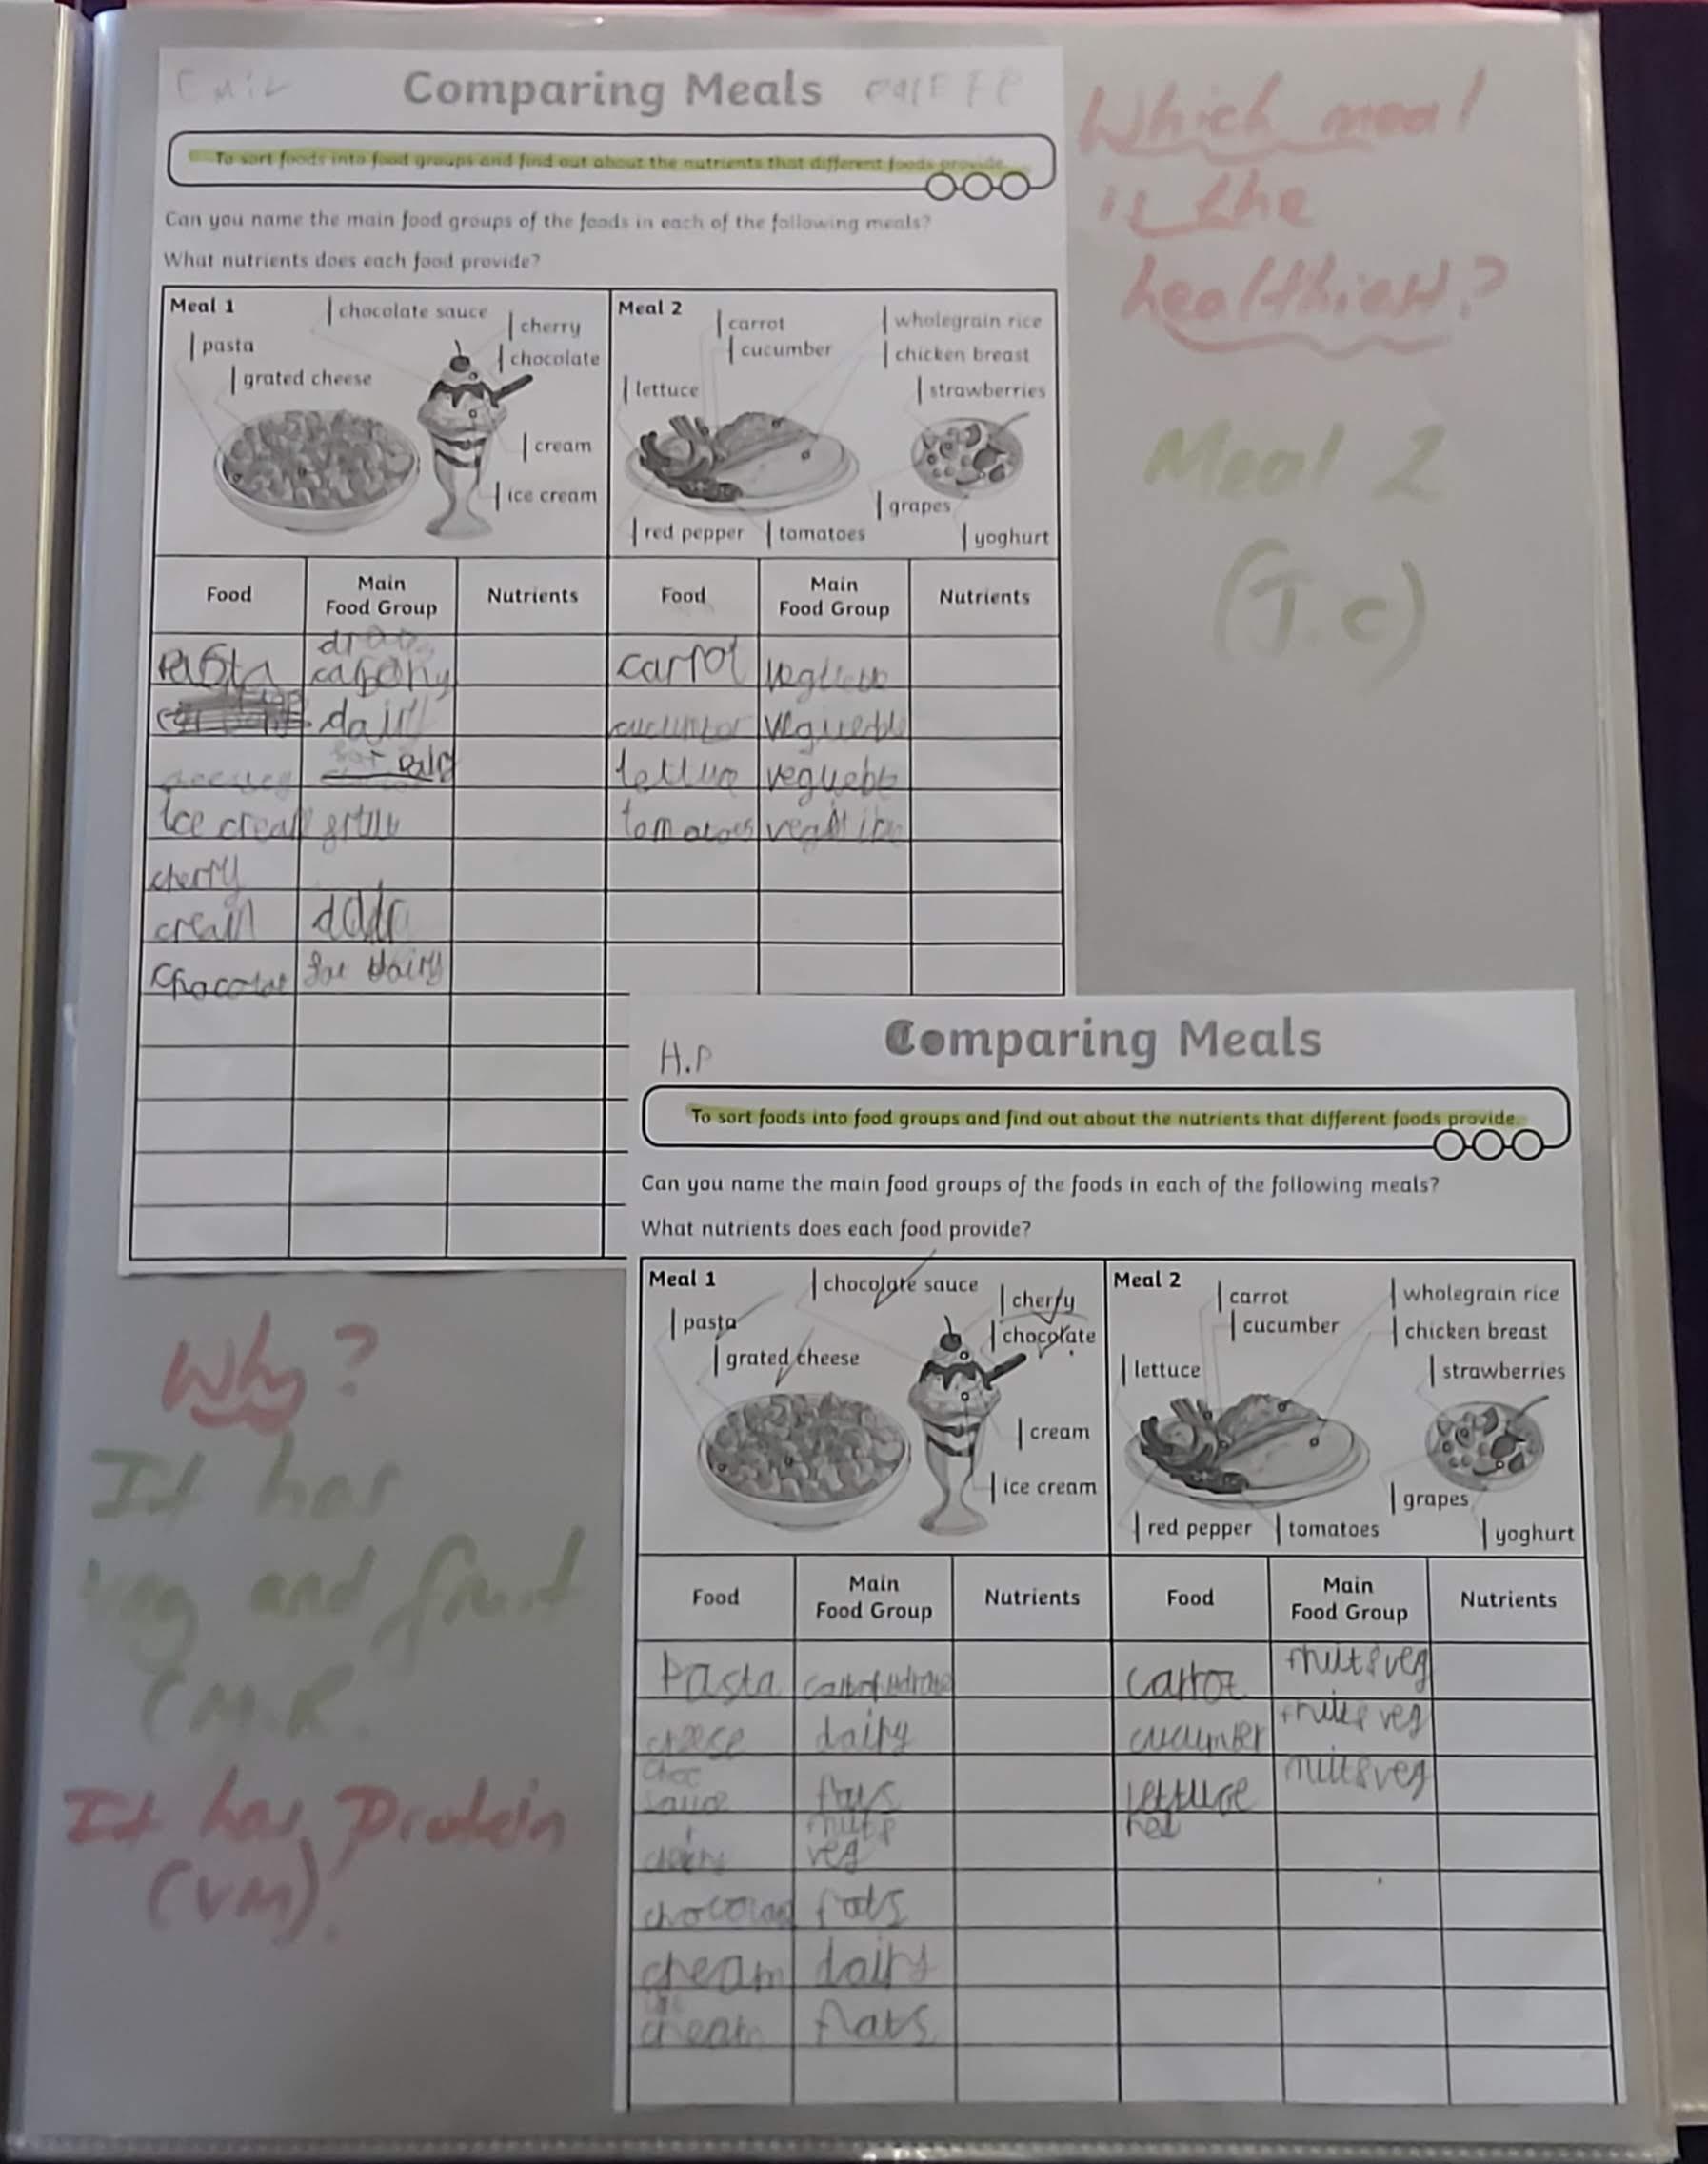 Comparing Meals
To sort foods into food groups and find out about the nutrients that different foods provide.
Can you name the main food groups of the foods in each of the following meals?
What nutrients does each food provide?
Meal 1
chocolate sauce
cherry
pasta
chocolate
grated cheese
cream
ice cream
Meal 2
carrot
wholegrain rice
cucumber
chicken breast
lettuce
strawberries
grapes
red pepper
tomatoes
yoghurt
Food
Main
Food Group
Nutrients
Food
Main
Food Group
Nutrients
Pasta
carrot
dairy
Ice cream
tomatoes
cherry
cream
fat dairy
Which meal
is the
healthiest?
Meal 2
(T.c)
Why?
It has
veg and fruit
(M.R.
It has Protein
(VM).
H.P
Comparing Meals
To sort foods into food groups and find out about the nutrients that different foods provide.
Can you name the main food groups of the foods in each of the following meals?
What nutrients does each food provide?
Meal 1
chocolate sauce
cherry
pasta
chocolate
grated cheese
cream
ice cream
Meal 2
carrot
wholegrain rice
cucumber
chicken breast
lettuce
strawberries
grapes
red pepper
tomatoes
yoghurt
Food
Main
Food Group
Nutrients
Food
Main
Food Group
Nutrients
Pasta
carrot
fruit & veg
dairy
cucumber
fruit & veg
choc
sauce
lettuce
fruit & veg
veg
fats
cream dairy